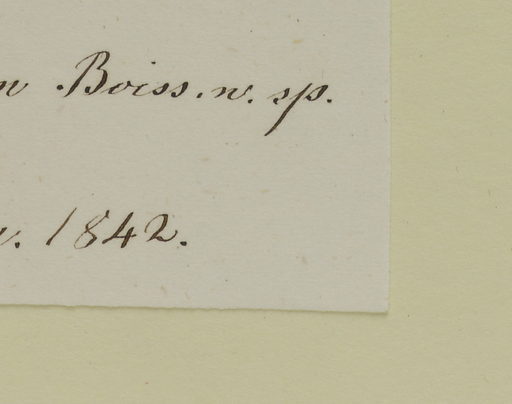 Boiss. n. sp.
1842.